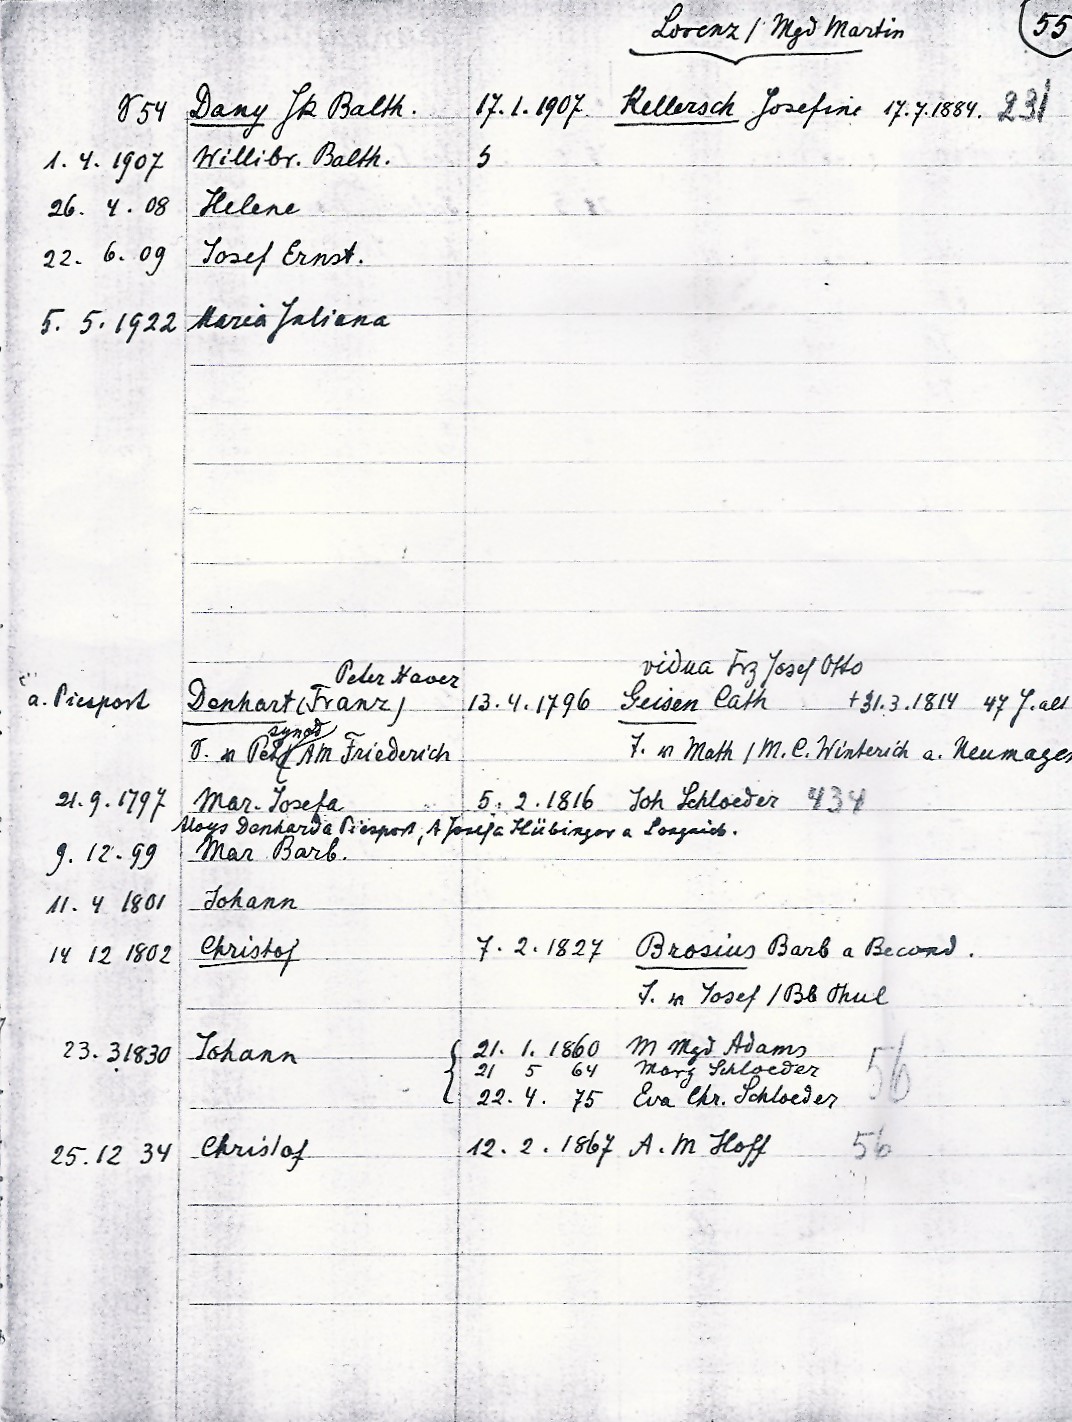 Lorenz / Mgd Martin 55
54 Dany Jk Balth. 17.1.1907 Kellersch Josefine 17.7.1884. 231
1. 4. 1907 Willibr. Balth. 5
26. 4. 08 Helene
22. 6. 09 Josef Ernst.
5. 5. 1922 Maria Juliana
Peter Xaver vidua Frz Josef Otto
a. Piesport Denhart (Franz) 13.4.1796 Geisen Cath +31.3.1814 47 J. alt
synod
Pet / AM Friederich Math / M. C. Winterich a. Neumagen
21.9.1797 Mar. Josefa 5. 2. 1816 Joh Schloeder 434
Aloys Denhard a Piesport, A Josefa Hübinger a
9. 12. 99 Mar Barb.
11. 4 1801 Johann
14 12 1802 Christof 7. 2. 1827 Brosius Barb a Becond.
Josef / Bb Thul
23. 3.1830 Johann { 21. 1. 1860 M Mgd Adams 56
21 5 64 Marg Schloeder
22. 4. 75 Eva Chr. Schloeder
25. 12 34 Christof 12. 2. 1867 A. M Hoff 56